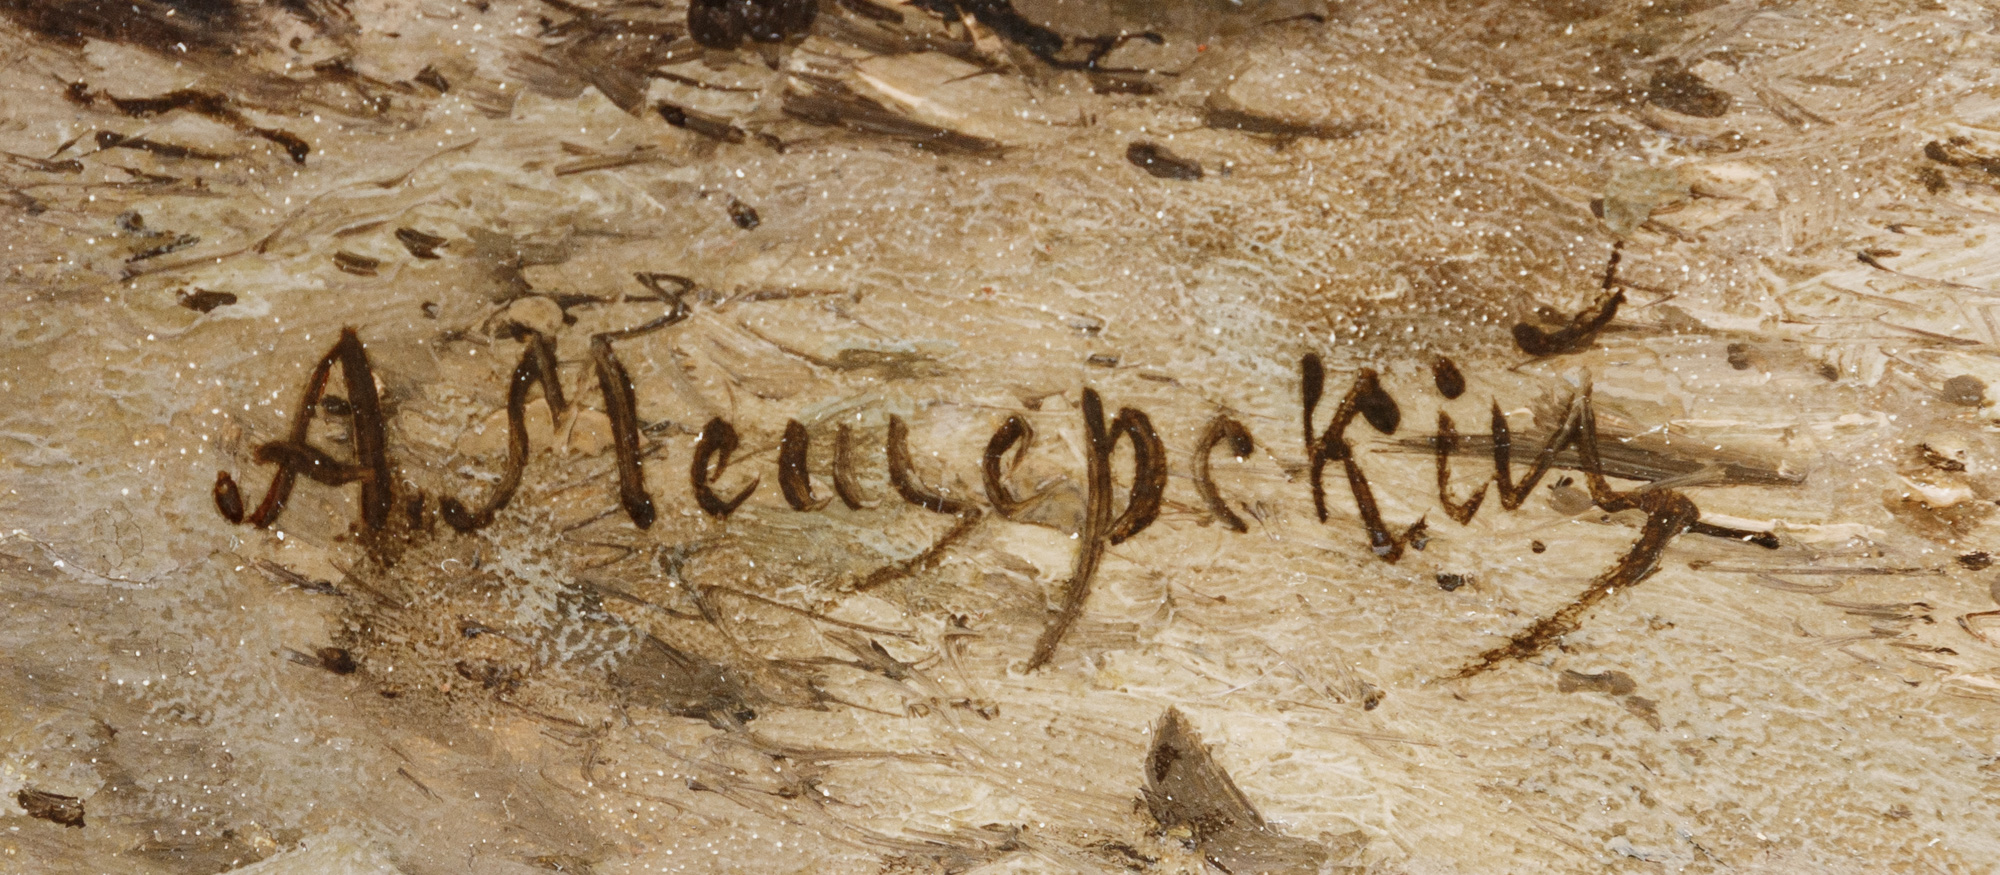 А. Мещерскій